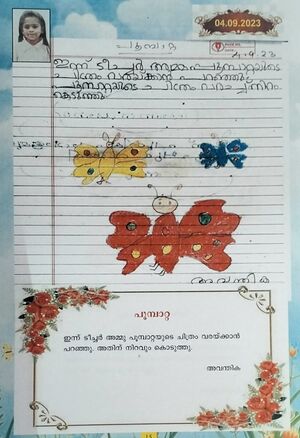 04.09.2023
പൂമ്പാറ്റ
4.9.23
ഇന്ന് ടീച്ചർ അമ്മു പൂമ്പാറ്റയുടെ
ചിത്രം വരയ്ക്കാൻ പറഞ്ഞു.
പൂമ്പാറ്റയുടെ ചിത്രം വരച്ച് നിറം
കൊടുത്തു
അവന്തിക
പൂമ്പാറ്റ
ഇന്ന് ടീച്ചർ അമ്മു പൂമ്പാറ്റയുടെ ചിത്രം വരയ്ക്കാൻ
പറഞ്ഞു. അതിന് നിറവും കൊടുത്തു.
അവന്തിക
15